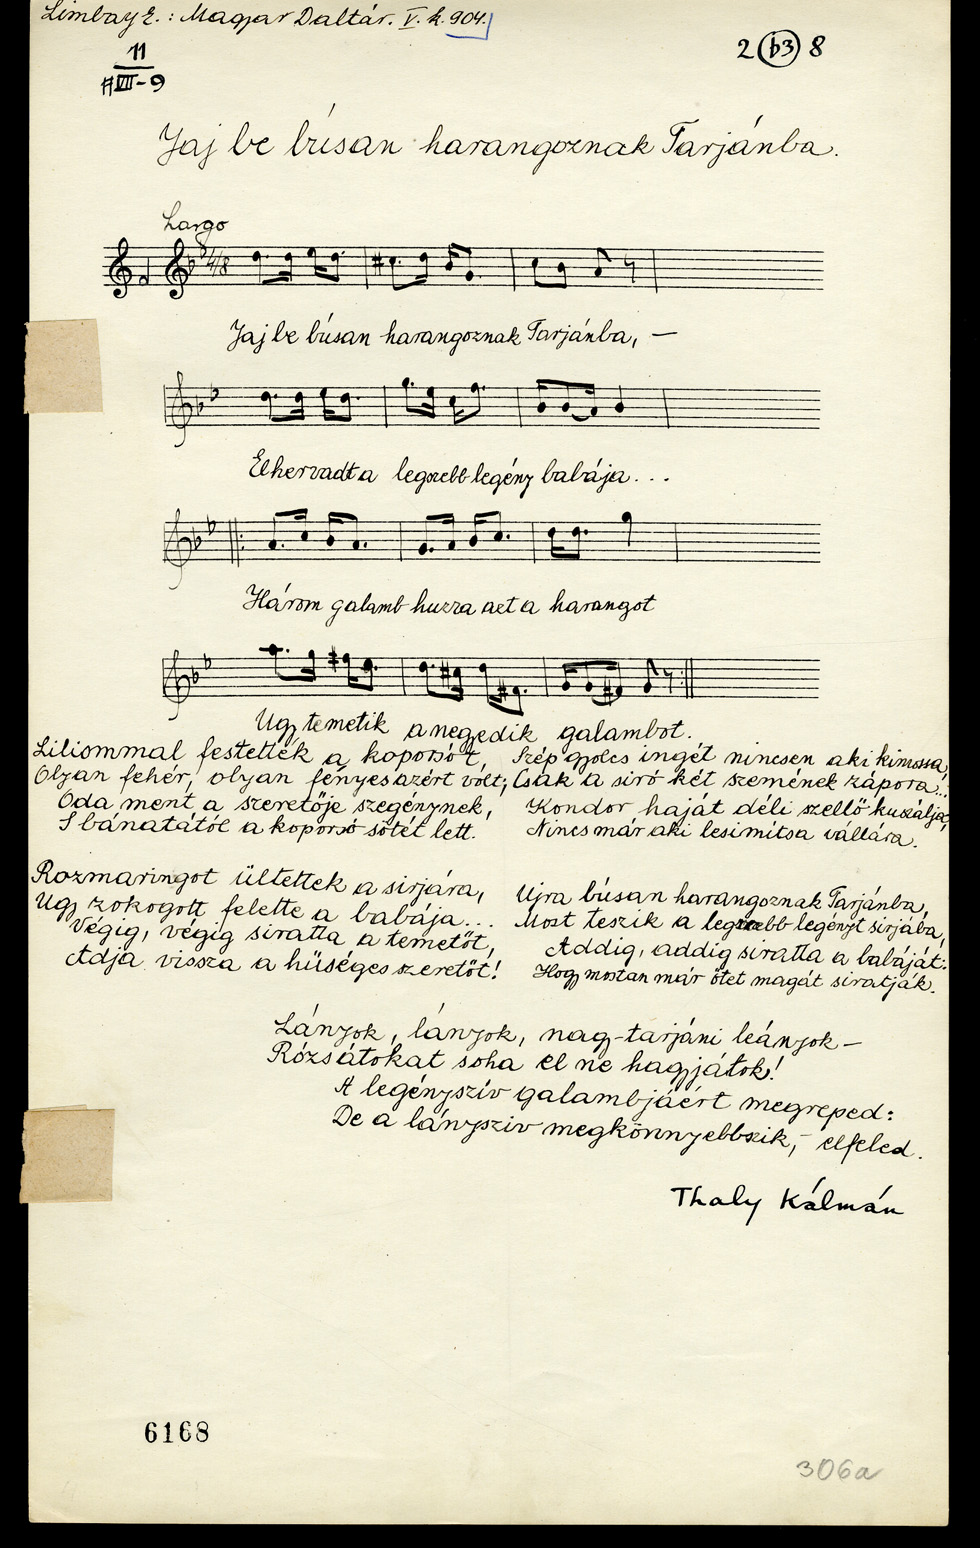 Limbay E.: Magyar Daltár. V. k. 904.
11
VII-9
2 b3 8
Jaj be búsan harangoznak Tarjánba.
Largo
2/4/8
Jaj be búsan harangoznak Tarjánba, —
Elhervadt a legszebb legény babája...
Három galamb huzza azt a harangot
Ugy temetik a negyedik galambot.
Liliommal festették a koporsót,
Olyan fehér, olyan fényes azért volt;
Oda ment a szeretője szegénynek,
S bánatától a koporsó sötét lett.
Szép gyolcs ingét nincsen a ki kimossa,
Csak a siró két szemének zápora...
Kondor haját déli szellő kuszálja,
Nincs már aki lesimítsa vállára.
Rozmaringot ültettek a sirjára,
Ugy zokogott felette a babája...
Végig, végig siratta a temetőt,
Adja vissza a hűséges szeretőt!
Ujra búsan harangoznak Tarjánba,
Most teszik a legszebb legényt sirjába,
Addig, addig siratta a babáját:
Hogy mostan már őtet magát siratják.
Lányok, lányok, nagy-tarjáni leányok —
Rózsátokat soha el ne hagyjátok!
A legényszív galambjáért megreped:
De a lánysziv megkönnyebbszik, — elfeled.
Thaly Kálmán
6168
306a